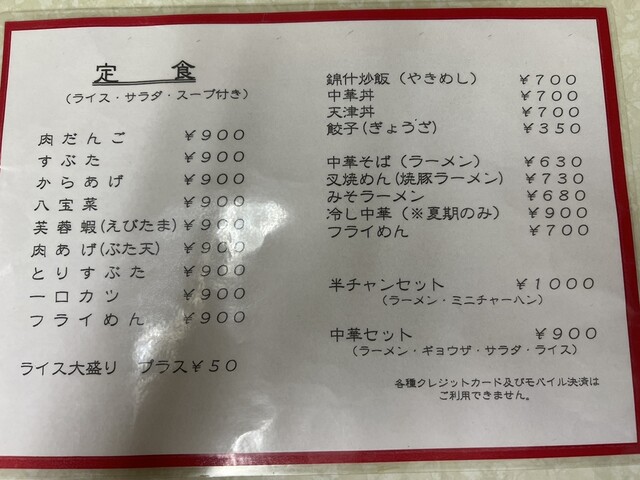 定食
(ライス・サラダ・スープ付き)
肉だんご ￥９００
すぶた ￥９００
からあげ ￥９００
八宝菜 ￥９００
芙蓉蝦(えびたま) ￥９００
肉あげ(ぶた天) ￥９００
とりすぶた ￥９００
一口カツ ￥９００
フライめん ￥９００
ライス大盛り プラス￥５０
錦什炒飯（やきめし） ￥７００
中華丼 ￥７００
天津丼 ￥７００
餃子(ぎょうざ) ￥３５０
中華そば（ラーメン） ￥６３０
叉焼めん(焼豚ラーメン) ￥７３０
みそラーメン ￥６８０
冷し中華（※夏期のみ） ￥９００
フライめん ￥７００
半チャンセット ￥１０００
（ラーメン・ミニチャーハン）
中華セット ￥９００
（ラーメン・ギョウザ・サラダ・ライス）
各種クレジットカード及びモバイル決済は
ご利用できません。